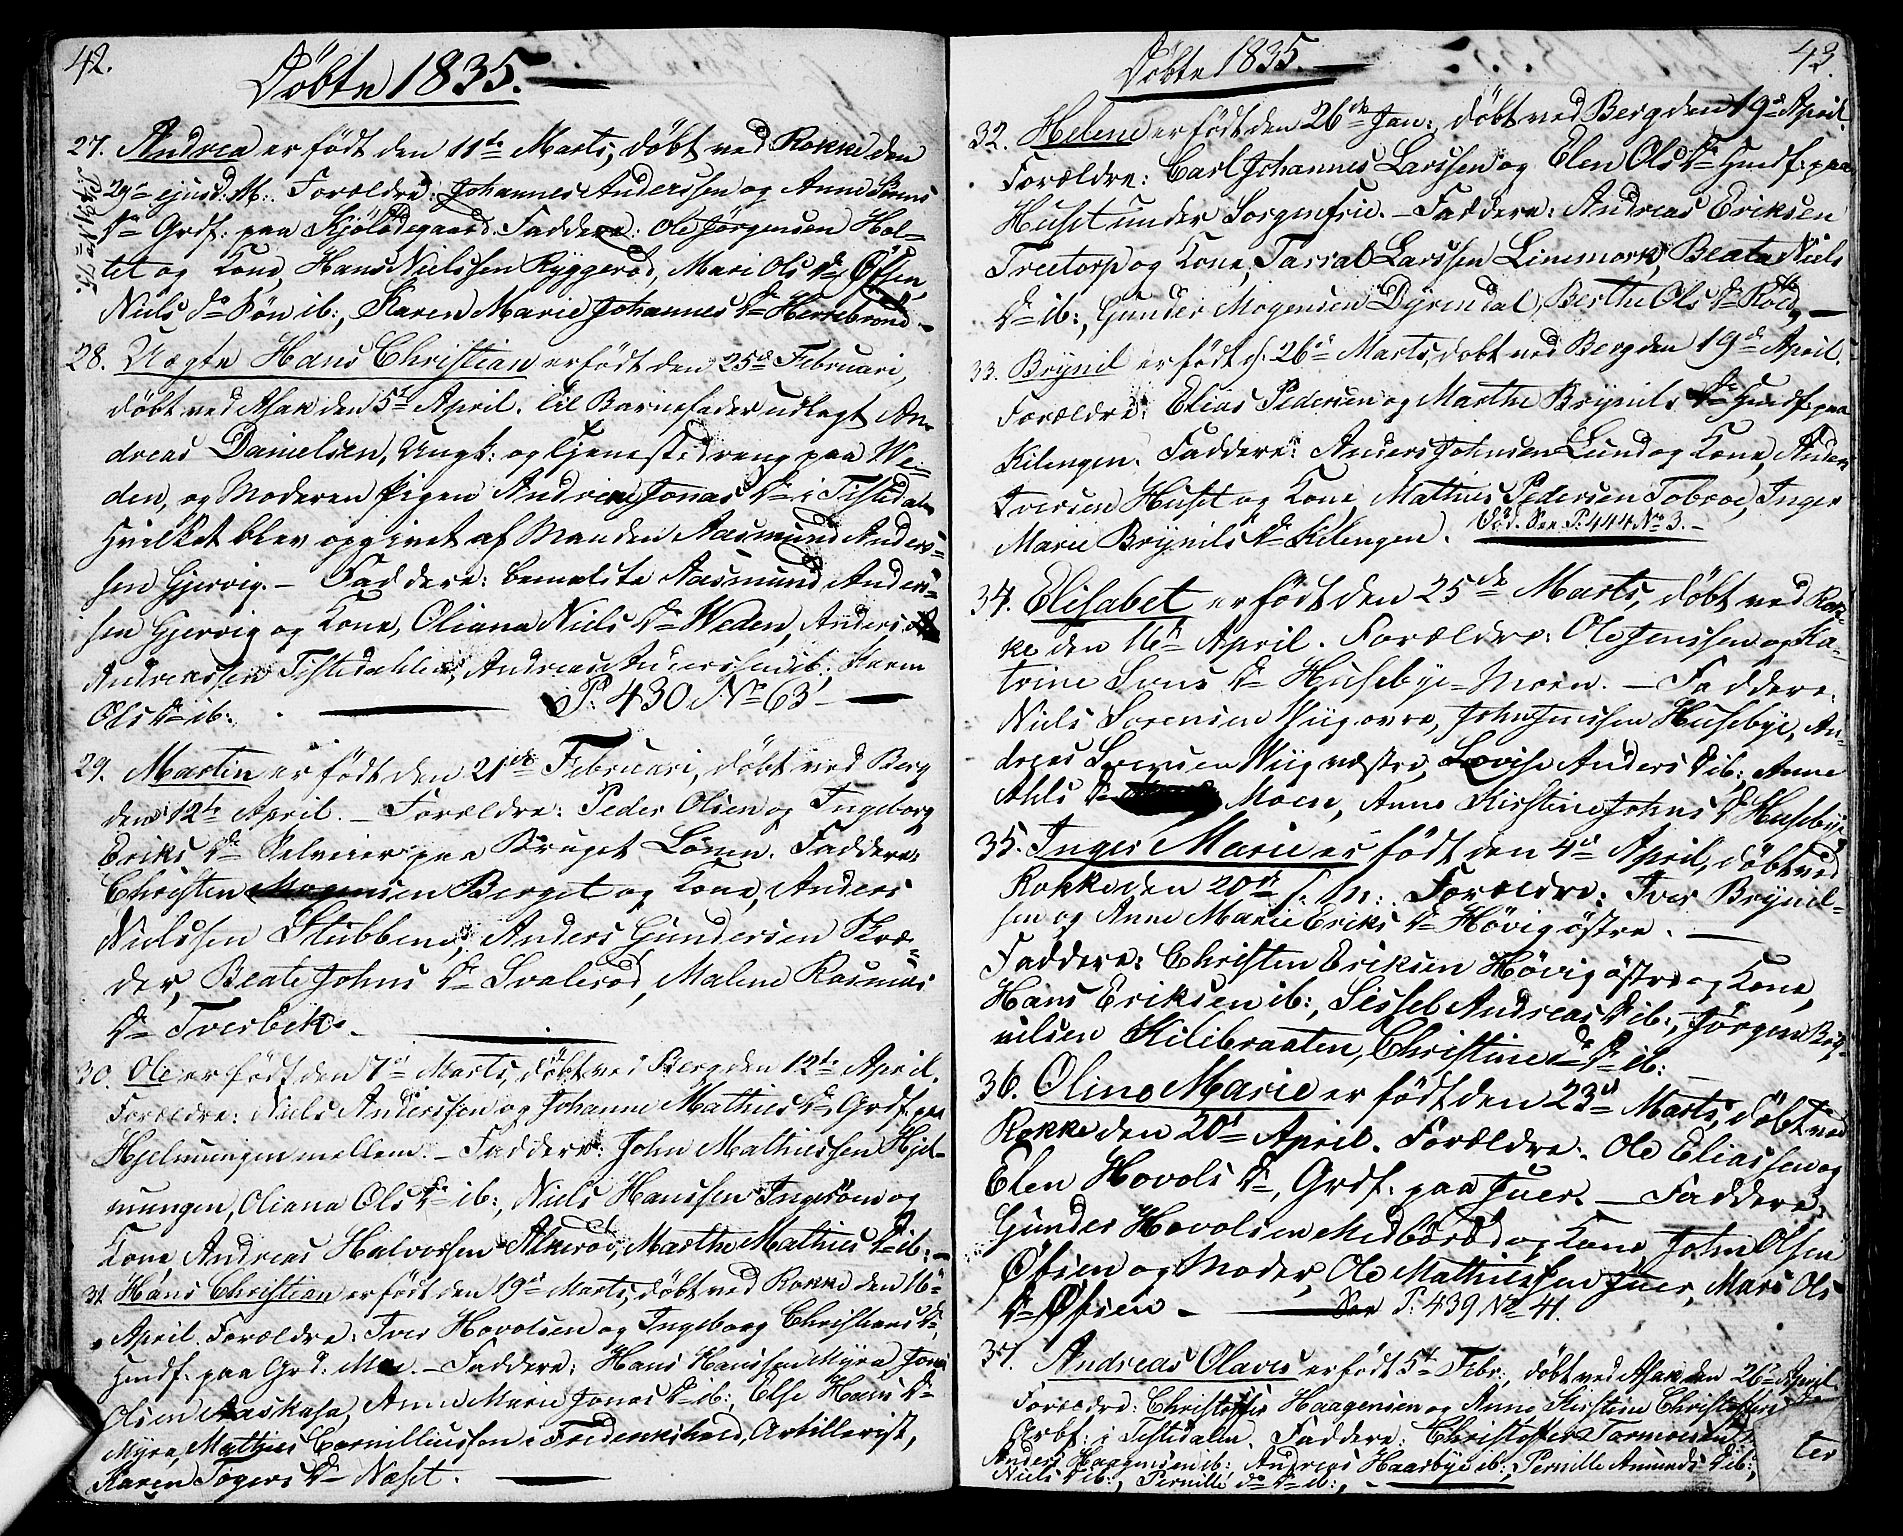 42.
Döbte 1835.
27. Andrea er födt den 11te Marts, döbt ved Rokke den
29de ejusd: M: Forældre: Johannes Anderssen og Anne
Dr Grdf: paa Kjölödegaard. Faddere: Ole Jørgensen Hol-
tet og Kone, Hans Nielssen Ryggeröd, Mari Ols Dr
Niels ib:, Karen Marie Johannes Dr Herrebrönd –
28. Uægte Hans Christian er födt den 25de Februari,
döbt ved Asak den 5te April. Til Barnefader udlagt An-
dreas Danielsen, Ungk: og Tjenestedreng paa We-
den, og Moderen Pigen Andrine Jonas Dr i Tistedalen
Hvilket blev opgivet af Manden Aasmund Anders-
sen Gjervig. – Faddere: bemelte Aasmund Anders-
sen Gjervig og Kone, Oliana Niels Dr Weden, Anders
Andreassen Tistedahlen, Andreas Anderssen ib:, Karen
Ols Dr ib:
P: 430 No 63
29. Martin er födt den 21de Februari, döbt ved Berg
den 12te April. – Forældre: Peder Olsen og Ingeborg
Eriks Dr Selveier paa Bruget Lören. Faddere:
Christen Mogensen Berget og Kone, Anders
Nielssen Stubbene, Anders Gundersen Skræ-
der, Beate Johns Dr Svaleröd, Malene Rasmus
Dr Tverbek. –
30. Ole er födt den 7de Marts, döbt ved Berg den 12te April.
Forældre: Niels Anderssen og Johanne Mathies Dr, Grdf: paa
Hjelmungen mellem. – Faddere: John Mathiessen Hjel-
mungen, Oliana Ols Dr ib:, Niels Hanssen Ingeröen og
Kone, Andreas Halvorsen Akeröd, Marthe Mathies Dr ib: –
31. Hans Christian er födt den 19de Marts, döbt ved Rokke den 16de
April. Forældre: Iver Hovolsen og Ingeborg Christians Dr,
Huusf: paa Grd: Moe. – Faddere: Hans Hanssen Myra, Jonas
Olsen Aaskasa, Anne Marie Jonas Dr ib:, Else Hans Dr
Myra, Mathies Cornilliussen i Frederikshald, Artillerist,
Karen Togers Dr Næset.
43.
Döbte 1835.
32. Helene er födt den 26de Jan:, döbt ved Berg den 19de April.
Forældre: Carl Johannes Larssen og Elen Ols Dr Huusf: paa
Huset under Sorgenfrie. – Faddere: Andreas Eriksen
Treetorp og Kone, Tarral Larssen Linnmork, Beata Niels
Dr ib:, Gunder Mogensen Dyrendal, Berthe Ols Dr
33. Brynil er födt d. 26de Marts, döbt ved Berg den 19de April.
Forældre: Elias Pedersen og Marthe Brynils Dr Huusf: paa
Kilengen. Faddere: Anders Johnsen Lund og Kone, Anders
Iversen Huset og Kone, Mathies Pedersen Tobroe, Inger
Marie Brynils Dr Kilengen. Död. See P: 444 No 3. –
34. Elisabet er födt den 25de Marts, döbt ved Rok-
ke den 16de April. Forældre: Ole Jenssen og Ka-
trine Sörens Dr Husebye-Moen. – Faddere:
Niels Sörensen Wiig övre, John Jenssen Husebye, An-
dreas Sörensen Wiig vestre, Lovise Anders Dr ib:, Anne
Ahls Dr Moen, Anne Kirstine Johns Dr Husebye
35. Inger Marie er födt den 4de April, döbt ved
Rokke den 20de s: M:. Forældre: Iver Brynil-
sen og Anne Marie Eriks Dr Hövig östre. –
Faddere: Christen Eriksen Hövig östre og Kone,
Hans Eriksen ib:, Sissel Andreas Dr ib:, Jörgen Bry-
nilsen Kilebraaten, Christine do Dr ib:
36. Oline Marie er födt den 23de Marts, döbt ved
Rokke den 20de April. Forældre: Ole Eliassen og
Elen Hovols Dr, Grdf: paa Juer. – Faddere:
Gunder Hovolsen Medböröd og Kone, John Olsen
Öfsen og Moder, Ole Mathiessen Juer, Mari Ols
Dr Öfsen – See P: 439 No 41.
37. Andreas Olaves er födt 5te Febr:, döbt ved Asak den 26de April.
Forældre: Christoffer Haagensen og Anne Kirstine Christoffers
Arbf: i Tistedalen. Faddere: Christoffer Tormoesen,
Anders Haagensen ib:, Andreas Haarbye ib:, Pernille Amunds Dr ib:,
Niels Dr ib:, Pernille do Dr ib:, –
ter